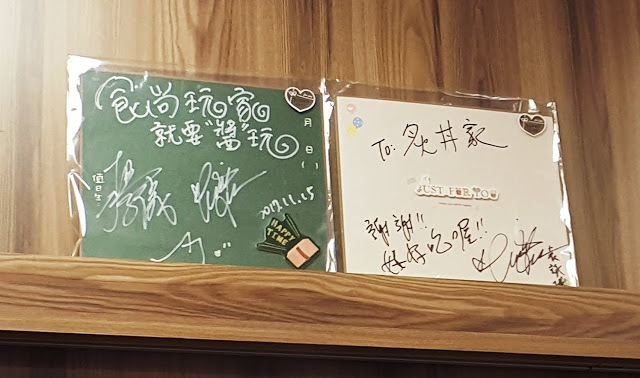 食尚玩家
就要"醬"玩
月
日
( )
值日生
2017.11.15
HAPPY
TIME
To: 炙丼家
JUST FOR YOU
謝謝!!
好好吃喔!!